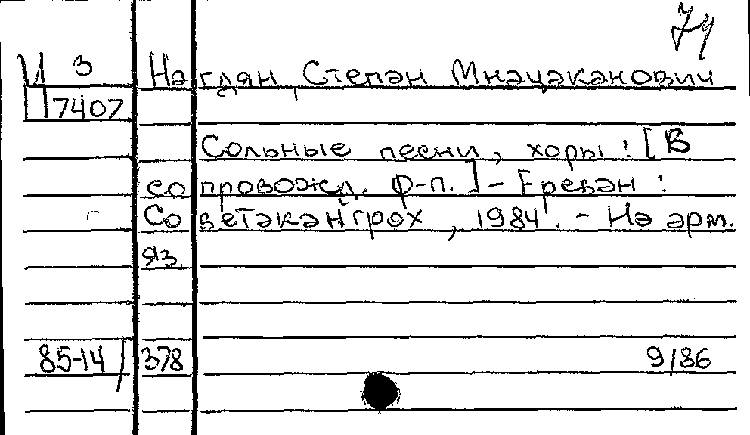 74
И 3 Нагдян, Степан Мнацаканович
П7407
Сольные песни, хоры : [В
сопровожд. ф-п.] - Ереван :
Советакан грох, 1984. - На арм.
яз
85-14/378 9/86